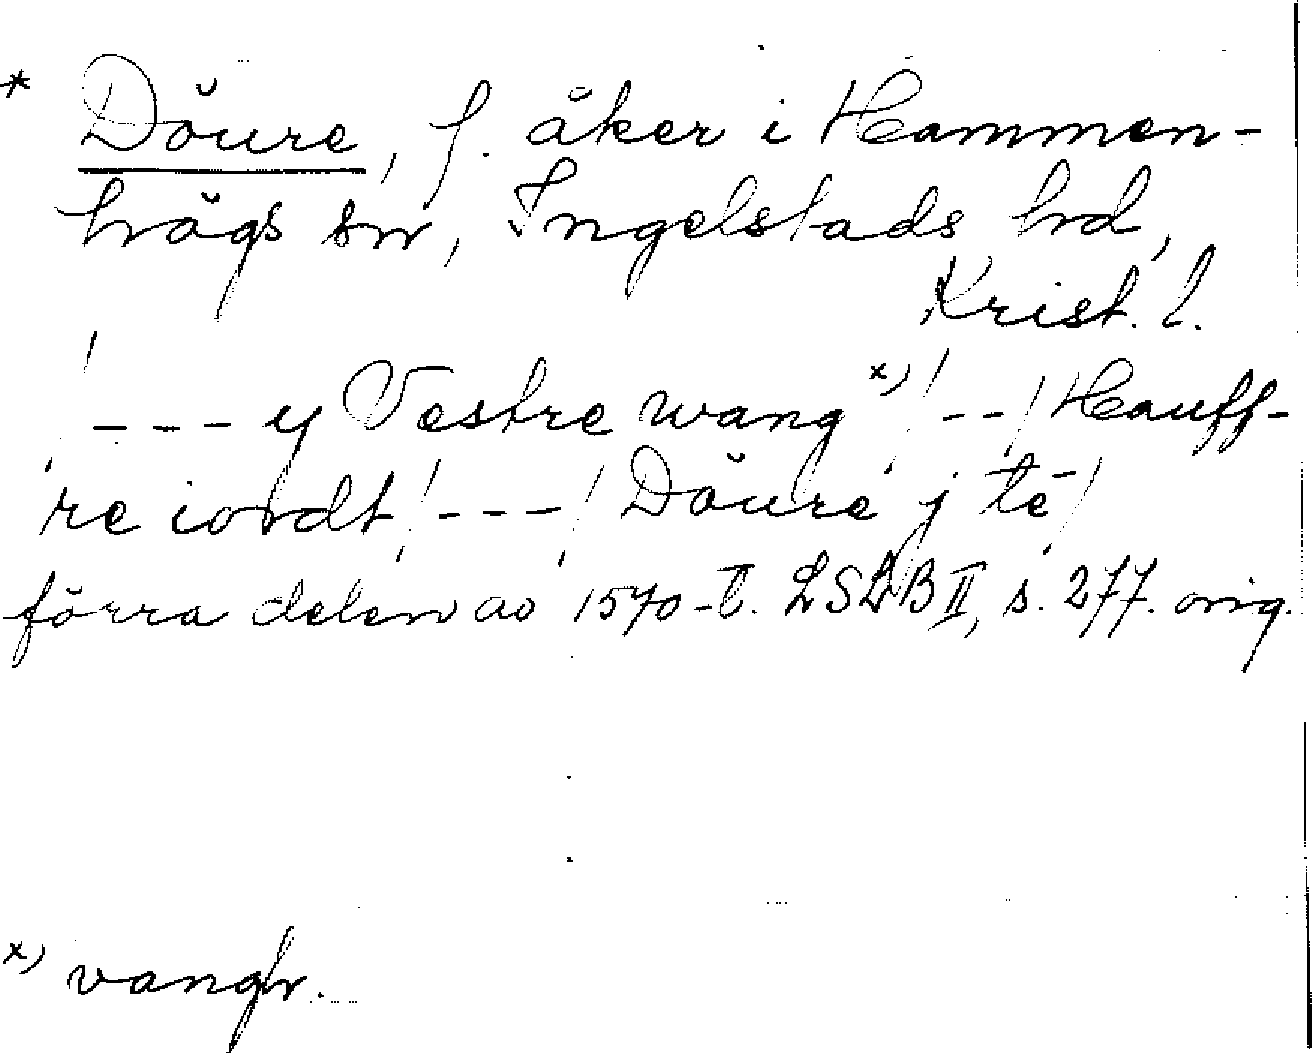 * Döure, f. åker i Hammen-
högs sn, Ingelstads hd,
Krist. l.
/---y Vestre wang x) /--/ Hauff-
re iordt /---/ Döure j tē /
förra delen av 1570-t. LSDB II, s. 277. orig.
x) vangh.